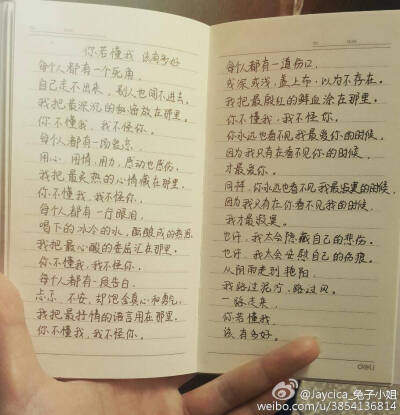 你若懂我 该有多好
每个人都有一个死角，
自己走不出来，别人也闯不进去。
我把最深沉的秘密放在那里。
你不懂我，我不怪你。
每个人都有一场爱恋，
用心、用情、用力，感动也感伤。
我把最炙热的心情藏在那里。
你不懂我，我不怪你。
每个人都有一行眼泪，
喝下的冰冷的水，酝酿成的热泪。
我把最心酸的委屈汇在那里。
你不懂我，我不怪你。
每个人都有一段告白，
忐忑、不安，却饱含真心和勇气。
我把最抒情的语言用在那里。
你不懂我，我不怪你。
每个人都有一道伤口，
或深或浅，盖上布，以为不存在。
我把最殷红的鲜血涂在那里。
你不懂我，我不怪你。
你永远也看不见我最爱你的时候，
因为我只有在看不见你的时候，
才最爱你。
同样，你永远也看不见我最寂寞的时候，
因为我只有在你看不见我的时候，
我才最寂寞。
也许，我太会隐藏自己的悲伤。
也许，我太会安慰自己的伤痕。
从阴雨走到艳阳，
我路过泥泞、路过风。
一路走来，
你若懂我，
该有多好。
deli
@Jaycica_兔子小姐
weibo.com/u/3854136814